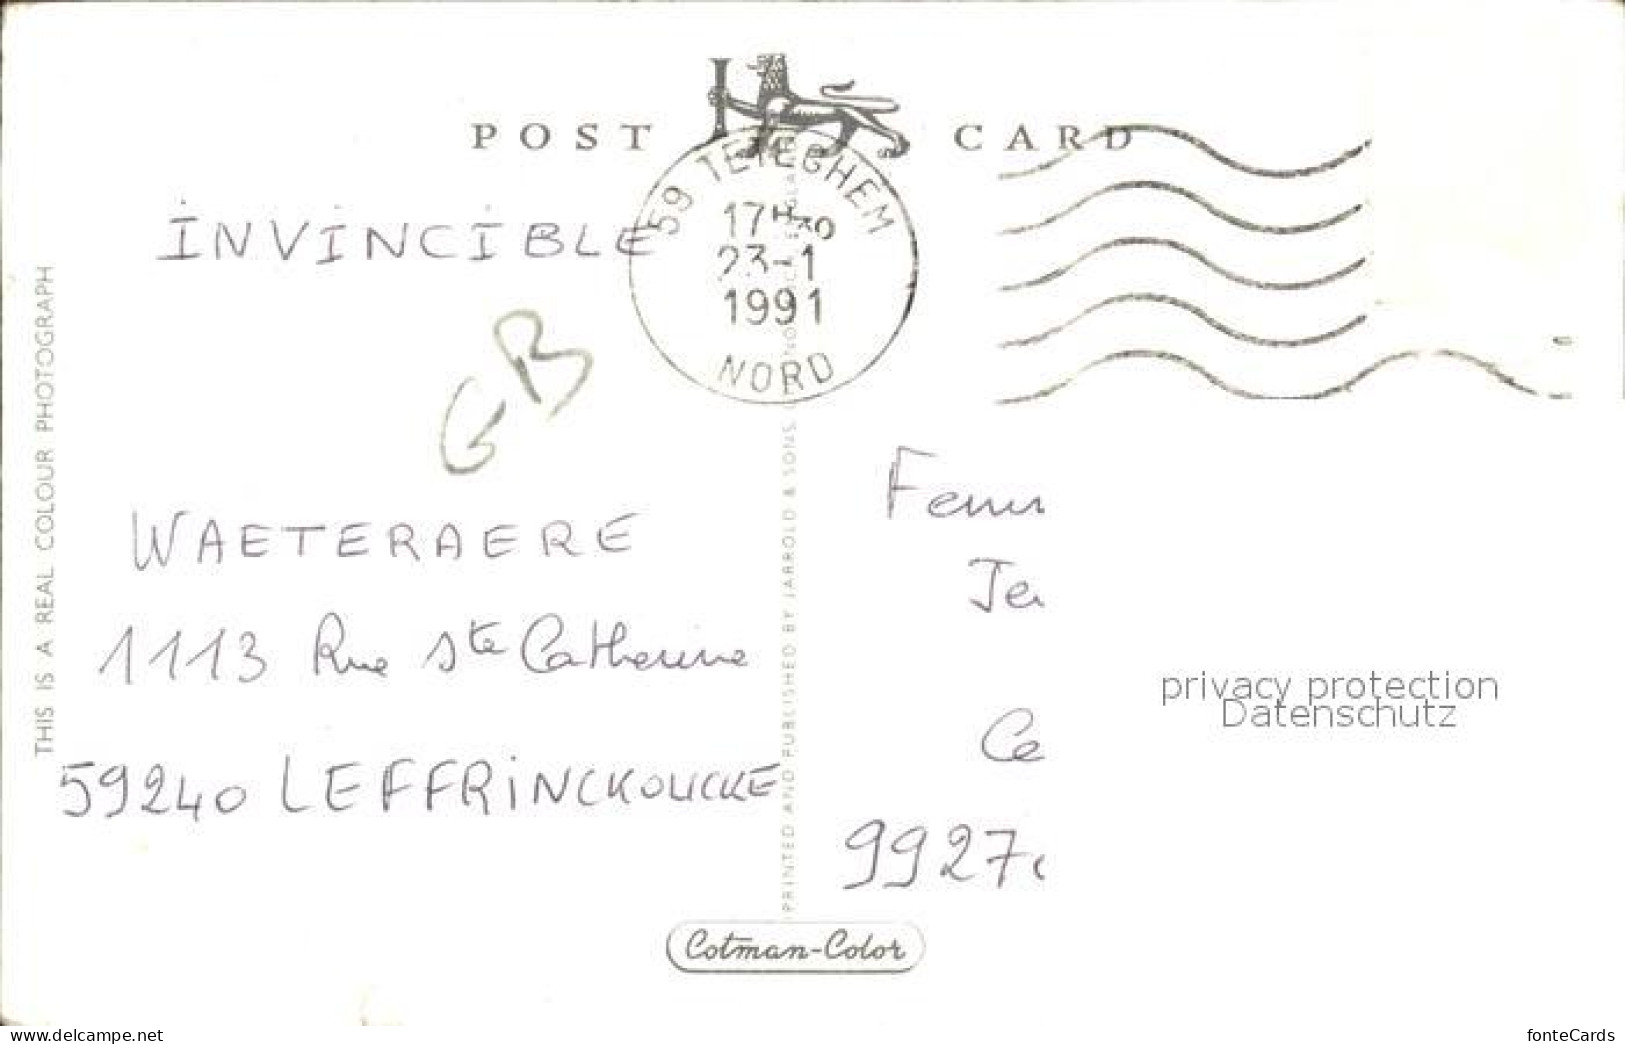 POST CARD
59 TETEGHEM
17H30
23-1
1991
NORD
INVINCIBLE
GB
WAETERAERE
1113 Rue Ste Catherine
59240 LEFFRINCKOUCKE
THIS IS A REAL COLOUR PHOTOGRAPH
PRINTED AND PUBLISHED BY JARROLD & SONS
Je
Ce
9927
privacy protection
Datenschutz
Cotman-Color
www.delcampe.net
fonteCards